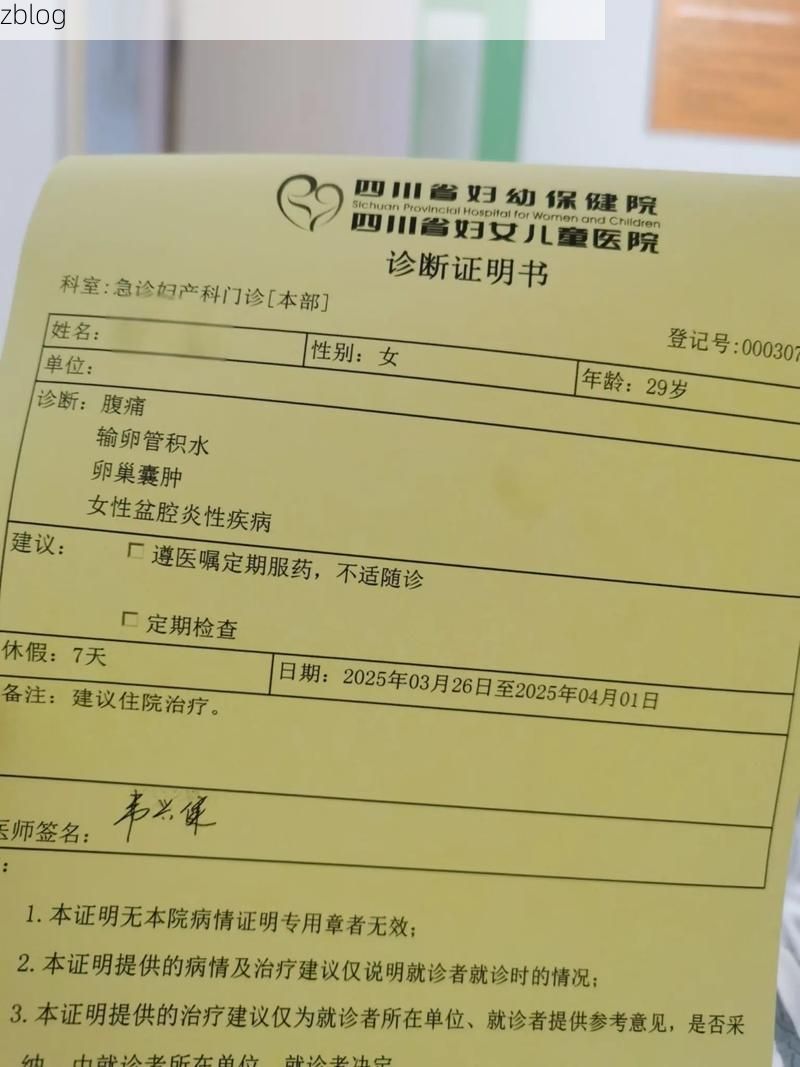 zblog
四川省妇幼保健院
Sichuan Provincial Hospital for Women and Children
四川省妇女儿童医院
诊断证明书
科室:急诊妇产科门诊[本部]
登记号:000307
姓名:
性别: 女
年龄: 29岁
单位:
诊断: 腹痛
输卵管积水
卵巢囊肿
女性盆腔炎性疾病
建议: 遵医嘱定期服药，不适随诊
定期检查
休假: 7天
日期: 2025年03月26日至2025年04月01日
备注: 建议住院治疗。
医师签名:
:
1.本证明无本院病情证明专用章者无效;
2.本证明提供的病情及治疗建议仅说明就诊者就诊时的情况;
3.本证明提供的治疗建议仅为就诊者所在单位、就诊者提供参考意见，是否采
纳，由就诊者所在单位、就诊者决定